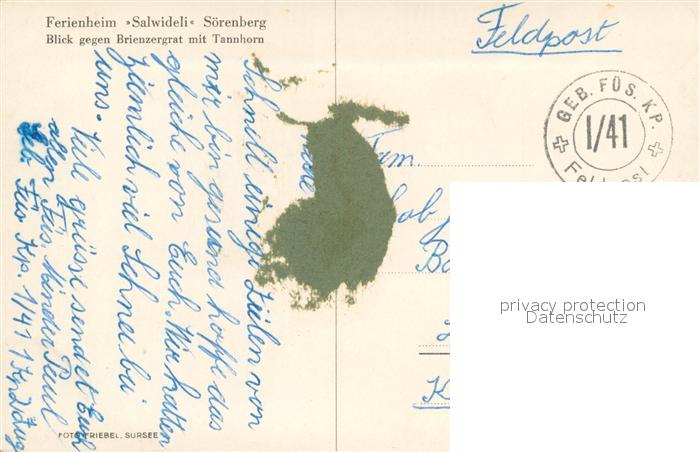 Ferienheim »Salwideli« Sörenberg
Blick gegen Brienzergrat mit Tannhorn
Feldpost
GEB. FÜS. KP.
I/41
Feldpost
Fam.
Schnell einige Zeilen von
mir bin gesund hoffe das
gleiche von Euch. Wir hatten
ziemlich viel Schnee bei
uns. Viele grüsse sendet Euch
allen Füs. Minder Paul
Füs Kp. 1/41 1 Kp Zug
FOTO FRIEBEL, SURSEE
privacy protection
Datenschutz